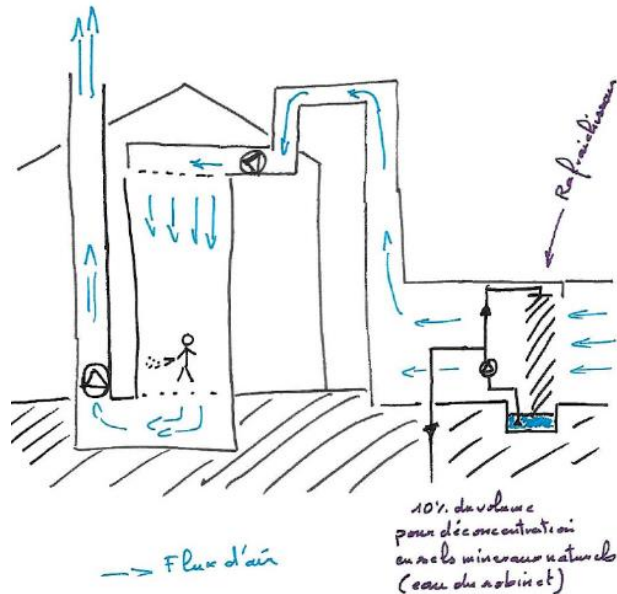 Rafraichisseur
10% du volume
pour déconcentration
en sels minéraux naturels
(eau du robinet)
Flux d'air